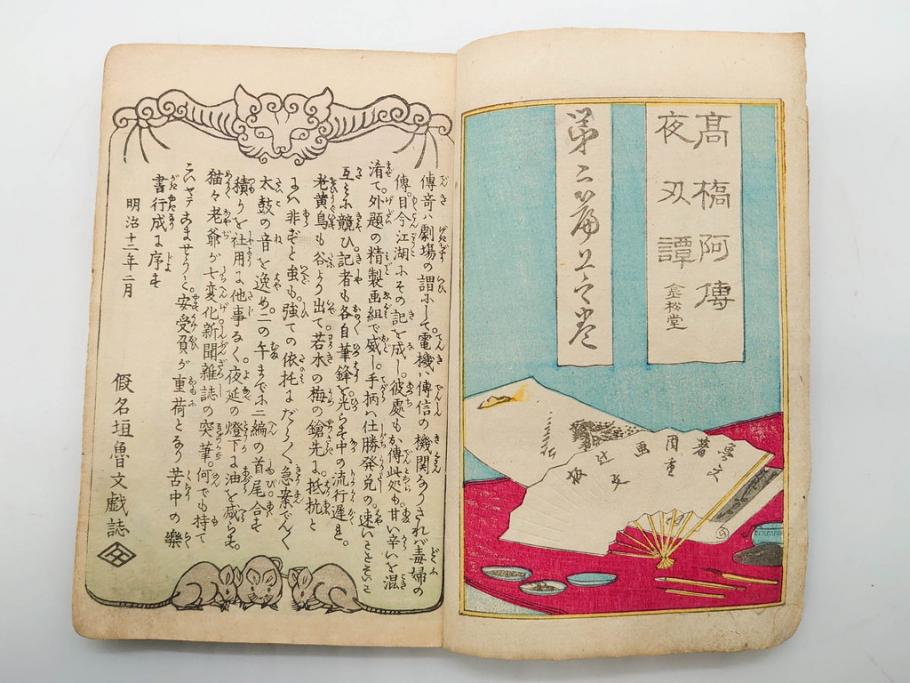 髙槗阿傳
夜刄譚
金松堂
第二篇上之巻
魯文
著
国重
画
辻文
板
傳音ハ劇場の謂ふして。電機ハ傳信の機関なりされバ毒婦の
傳。目今江湖ふその記を成し。彼處もか傳此処も甘い辛いを混
淆て。外題の精製画組で威し。手柄ハ仕勝発兌の。速い
互ふ競ひ記者も各自筆鋒を。光らす中の流行遅を。
老黄鳥も谷より出て若水の梅の鎗先に。抵抗と
にハ非ずと虫も。強ての依托に急案でん〳〵
太鼓の音を逸め。二の午までふ二編の首尾合
積りを社用に他事なく。夜延の燈下に油を減らも。
猫々老爺が七変化新聞雑誌の突筆。何でも持て
こいサアおませうと。安受負が重荷となり苦中の樂
書行成に序
明治十二年二月
假名垣魯文戯誌